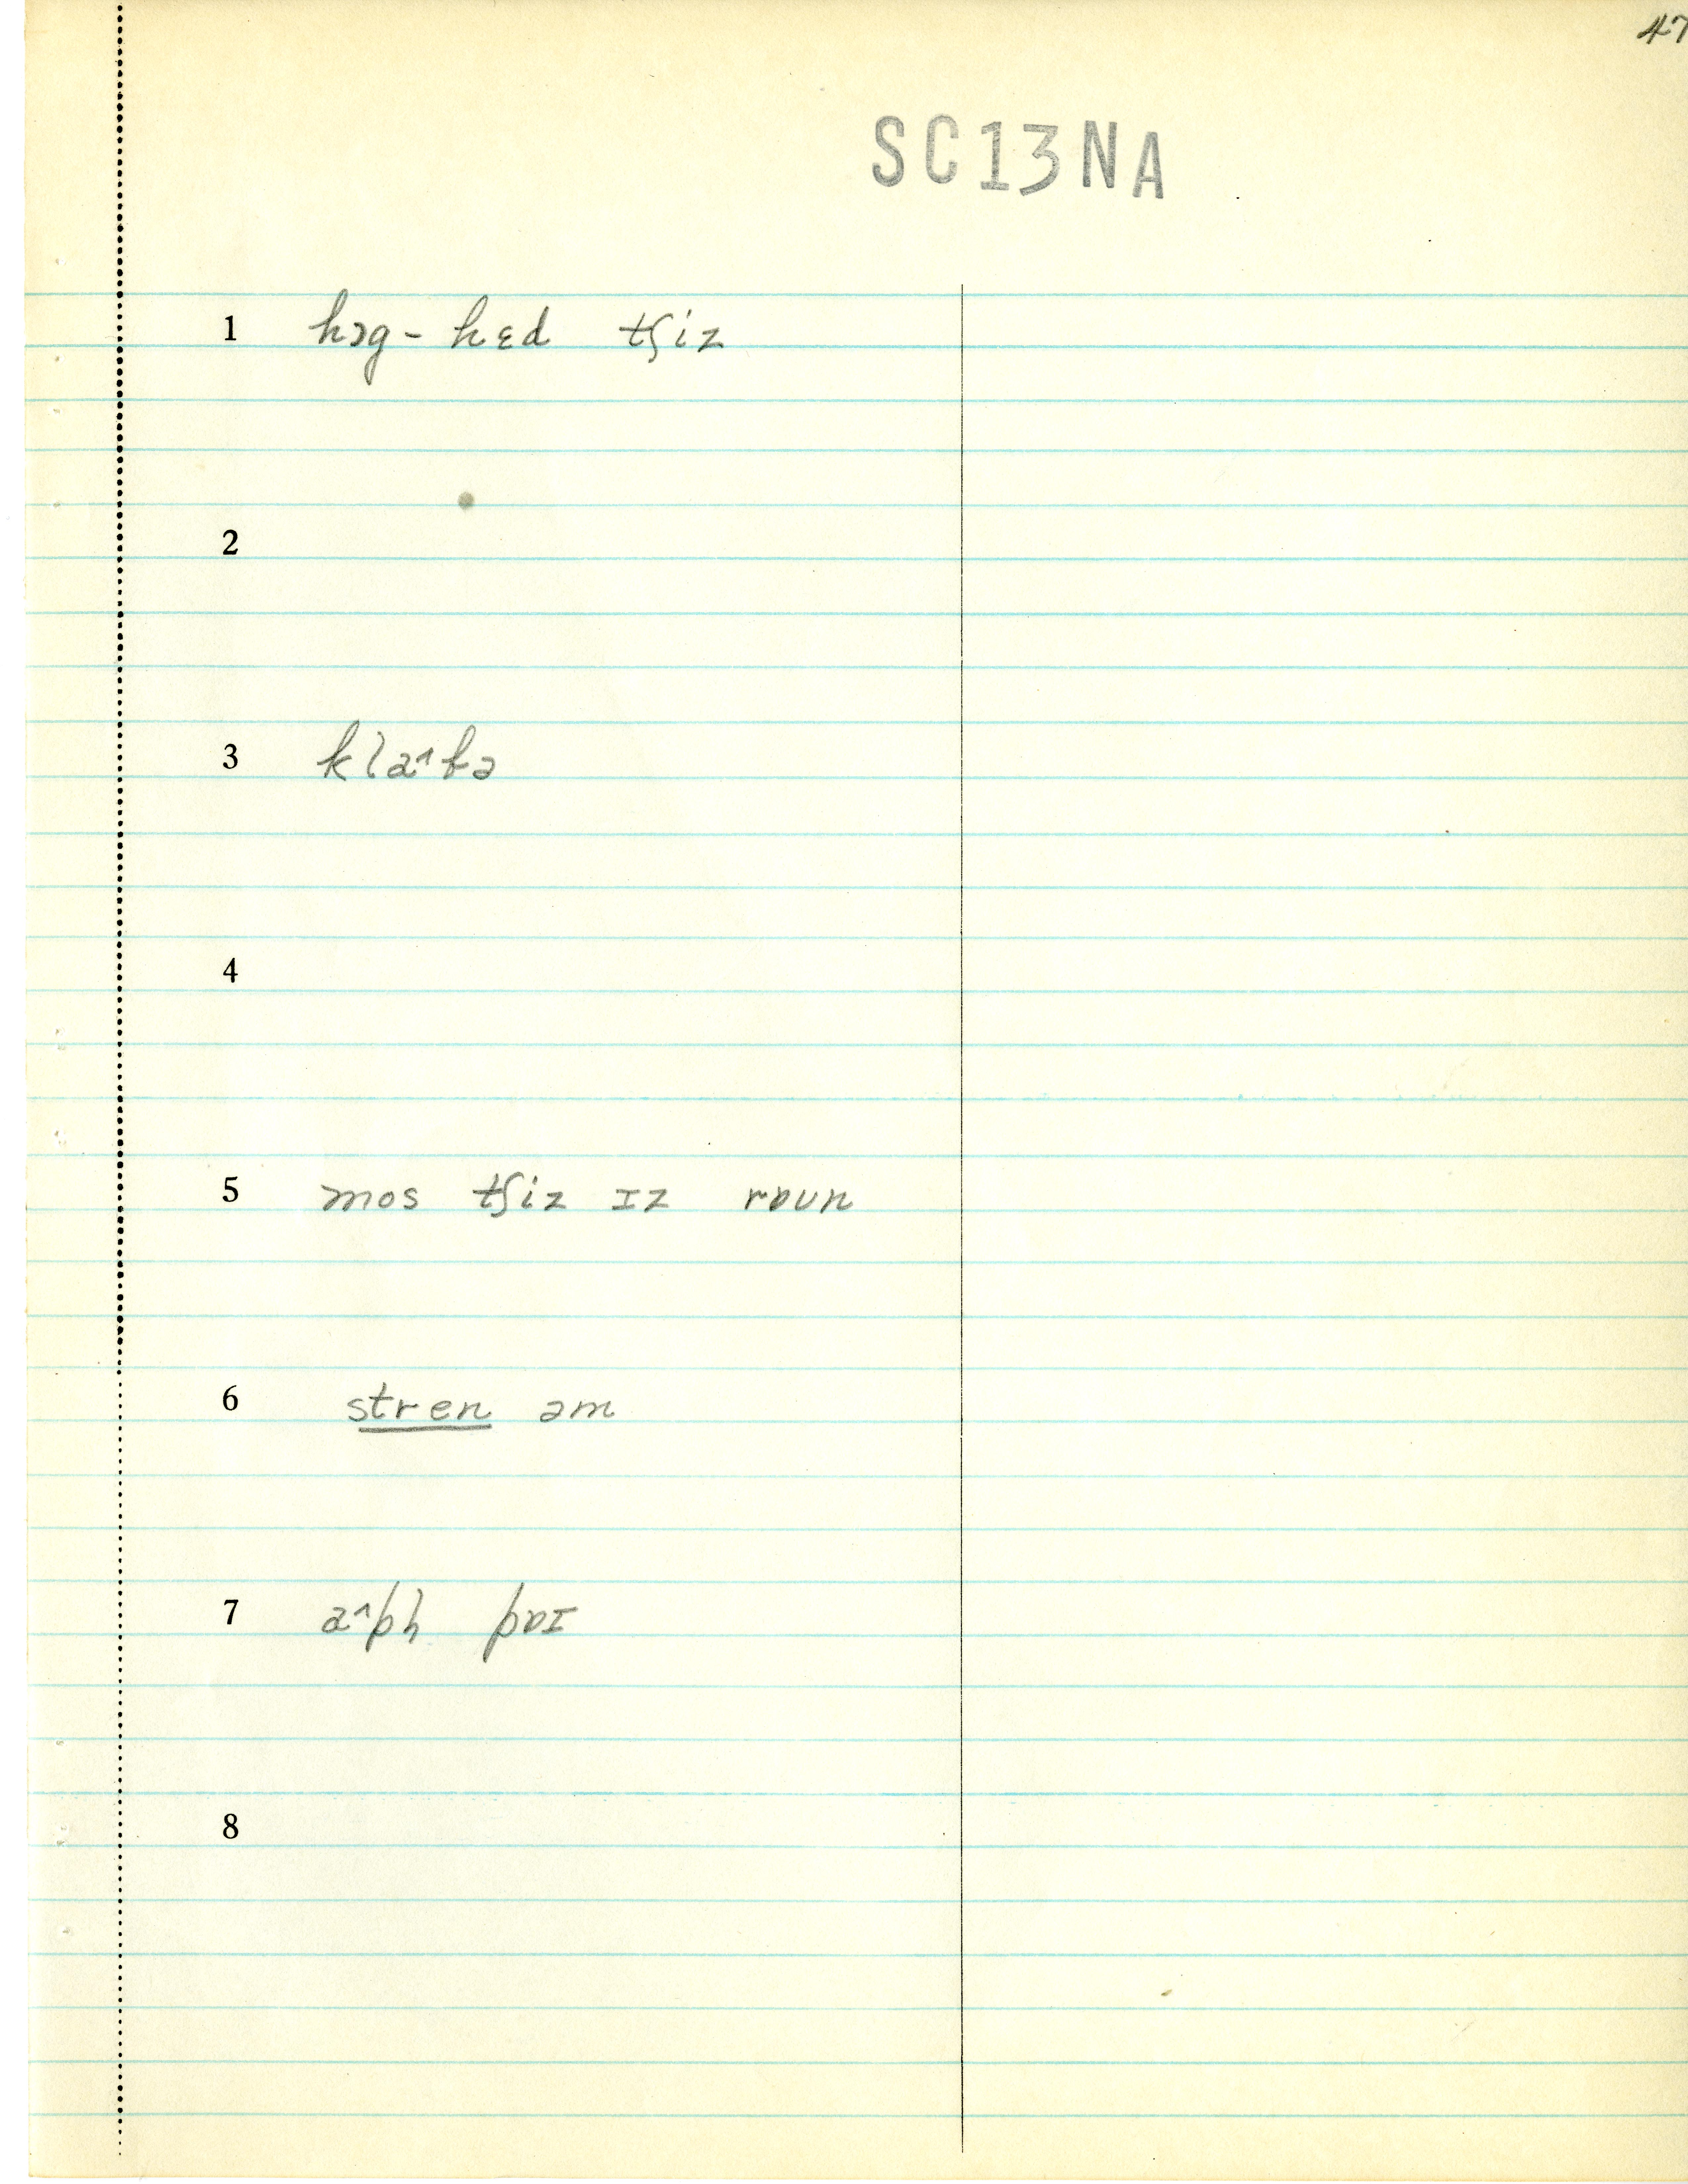 47
SC13NA
1 hɔg-hɛd tʃiz
2
3 klaˆbə
4
5 mos tʃiz ɪz rɒun
6 stren əm
7 aˆpḷ pɒɪ
8